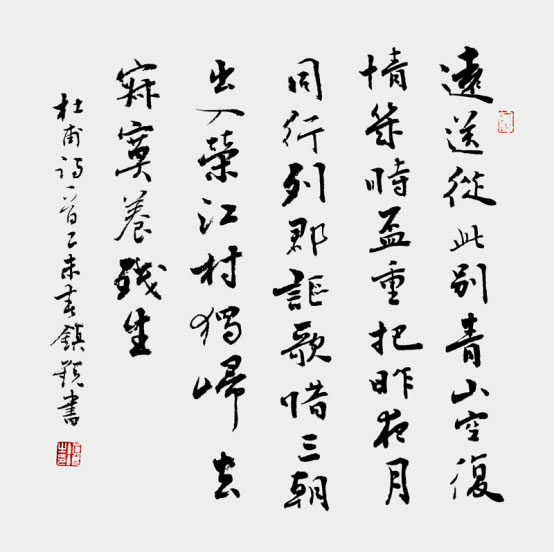 遠送從此別青山空復
情幾時盃重把昨夜月
同行列郡謳歌惜三朝
出入榮江村獨歸去
寂寞養殘生
杜甫詩一首乙未春鎮書